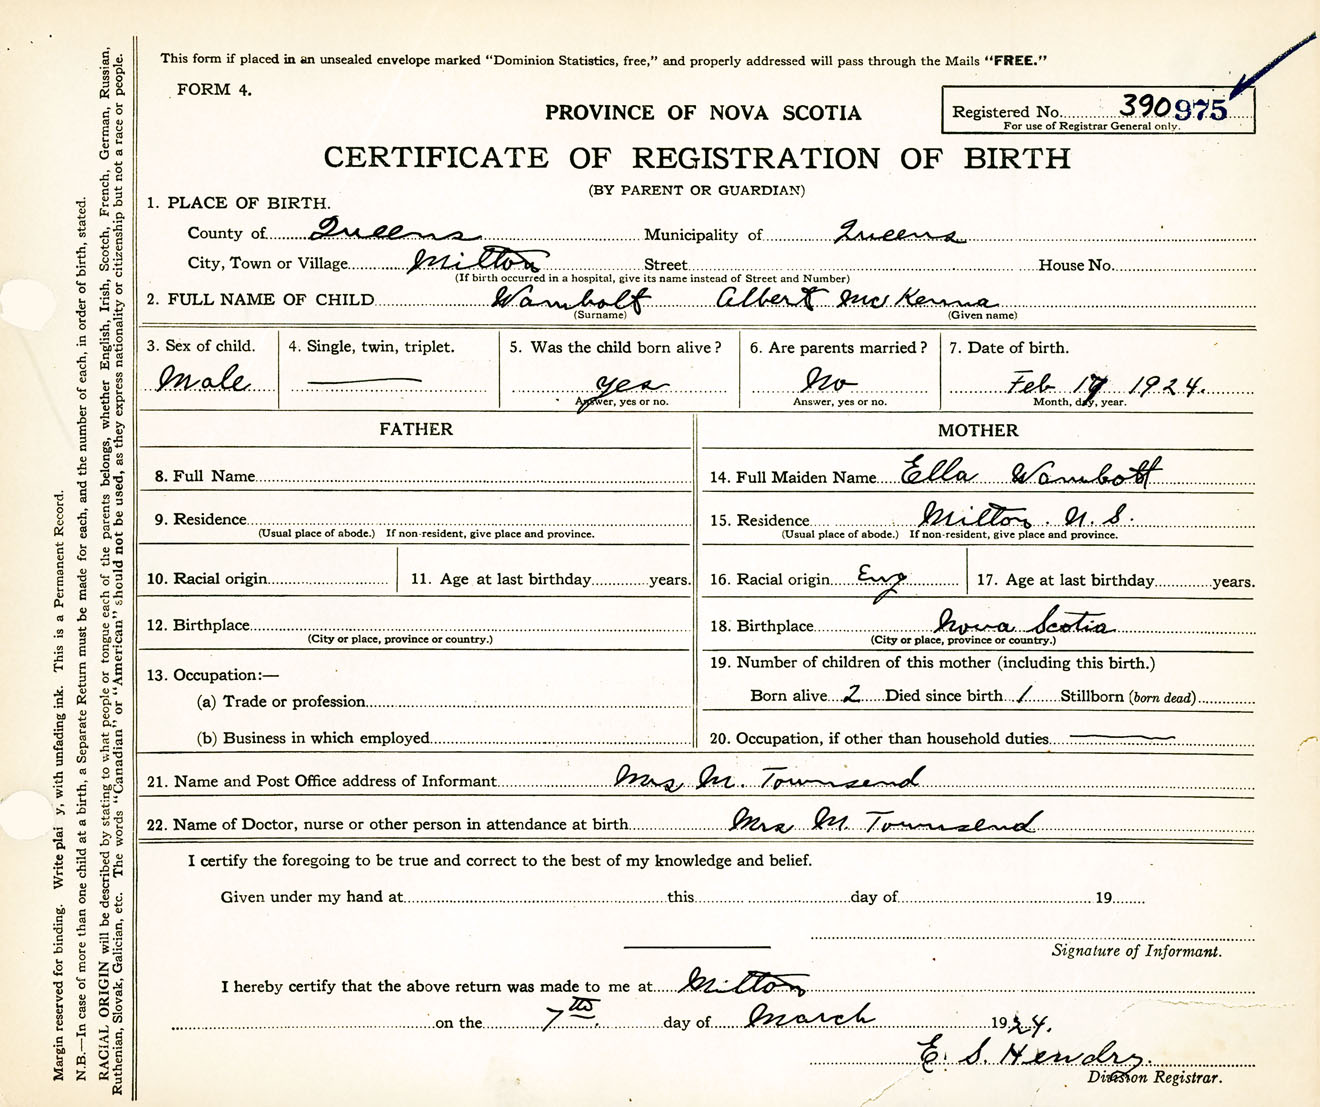 This form if placed in an unsealed envelope marked "Dominion Statistics, free," and properly addressed will pass through the Mails "FREE."
FORM 4.
PROVINCE OF NOVA SCOTIA
Registered No. 390975
For use of Registrar General only.
CERTIFICATE OF REGISTRATION OF BIRTH
(BY PARENT OR GUARDIAN)
1. PLACE OF BIRTH.
County of Queens Municipality of Queens
City, Town or Village Milton Street House No.
(If birth occurred in a hospital, give its name instead of Street and Number)
2. FULL NAME OF CHILD Wambolt Albert McKenna
(Surname) (Given name)
3. Sex of child. 4. Single, twin, triplet. 5. Was the child born alive? 6. Are parents married? 7. Date of birth.
Male — yes No Feb 17 1924.
Answer, yes or no. Answer, yes or no. Month, day, year.
FATHER MOTHER
8. Full Name 14. Full Maiden Name Ella Wambolt
9. Residence 15. Residence Milton. N. S.
(Usual place of abode.) If non-resident, give place and province. (Usual place of abode.) If non-resident, give place and province.
10. Racial origin 11. Age at last birthday years. 16. Racial origin Eng 17. Age at last birthday years.
12. Birthplace 18. Birthplace Nova Scotia
(City or place, province or country.) (City or place, province or country.)
13. Occupation:— 19. Number of children of this mother (including this birth.)
(a) Trade or profession Born alive 2 Died since birth 1 Stillborn (born dead)
(b) Business in which employed 20. Occupation, if other than household duties —
21. Name and Post Office address of Informant Mrs M. Townsend
22. Name of Doctor, nurse or other person in attendance at birth Mrs M. Townsend
I certify the foregoing to be true and correct to the best of my knowledge and belief.
Given under my hand at this day of 19
Signature of Informant.
I hereby certify that the above return was made to me at Milton
on the 7th. day of March 1924.
E. S. Hendry.
Division Registrar.
Margin reserved for binding. Write plai y, with unfading ink. This is a Permanent Record.
N.B.—In case of more than one child at a birth, a Separate Return must be made for each, and the number of each, in order of birth, stated.
RACIAL ORIGIN will be described by stating to what people or tongue each of the parents belongs, whether English, Irish, Scotch, French, German, Russian,
Ruthenian, Slovak, Galician, etc. The words "Canadian" or "American" should not be used, as they express nationality or citizenship but not a race or people.